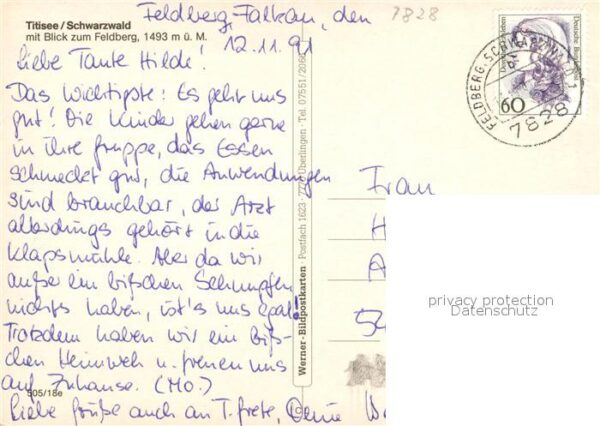 Titisee/Schwarzwald
mit Blick zum Feldberg, 1493 m ü. M.
Feldberg, Falkau, den
12.11.91
7828
Liebe Tante Hilde!
Das Wichtigste: Es geht uns
gut! Die Kinder gehen gerne
in ihre Gruppe, das Essen
schmeckt gut, die Anwendungen
sind brauchbar, der Arzt
allerdings gehört in die
Klapsmühle. Aber da wir
außer ein bißchen Schnupfen
nichts haben, ist's uns egal!
Trotzdem haben wir ein biß-
chen Heimweh u. freuen uns
auf Zuhause. (MO.)
Liebe Grüße auch an T. Grete, Deine
505/18e
Werner-Bildpostkarten · Postfach 1623 · 7770 Überlingen · Tel. 07551/2066
Deutsche Bundespost
60
FELDBERG, SCHWARZWALD 1
7828
Frau
H
A
54
privacy protection
Datenschutz